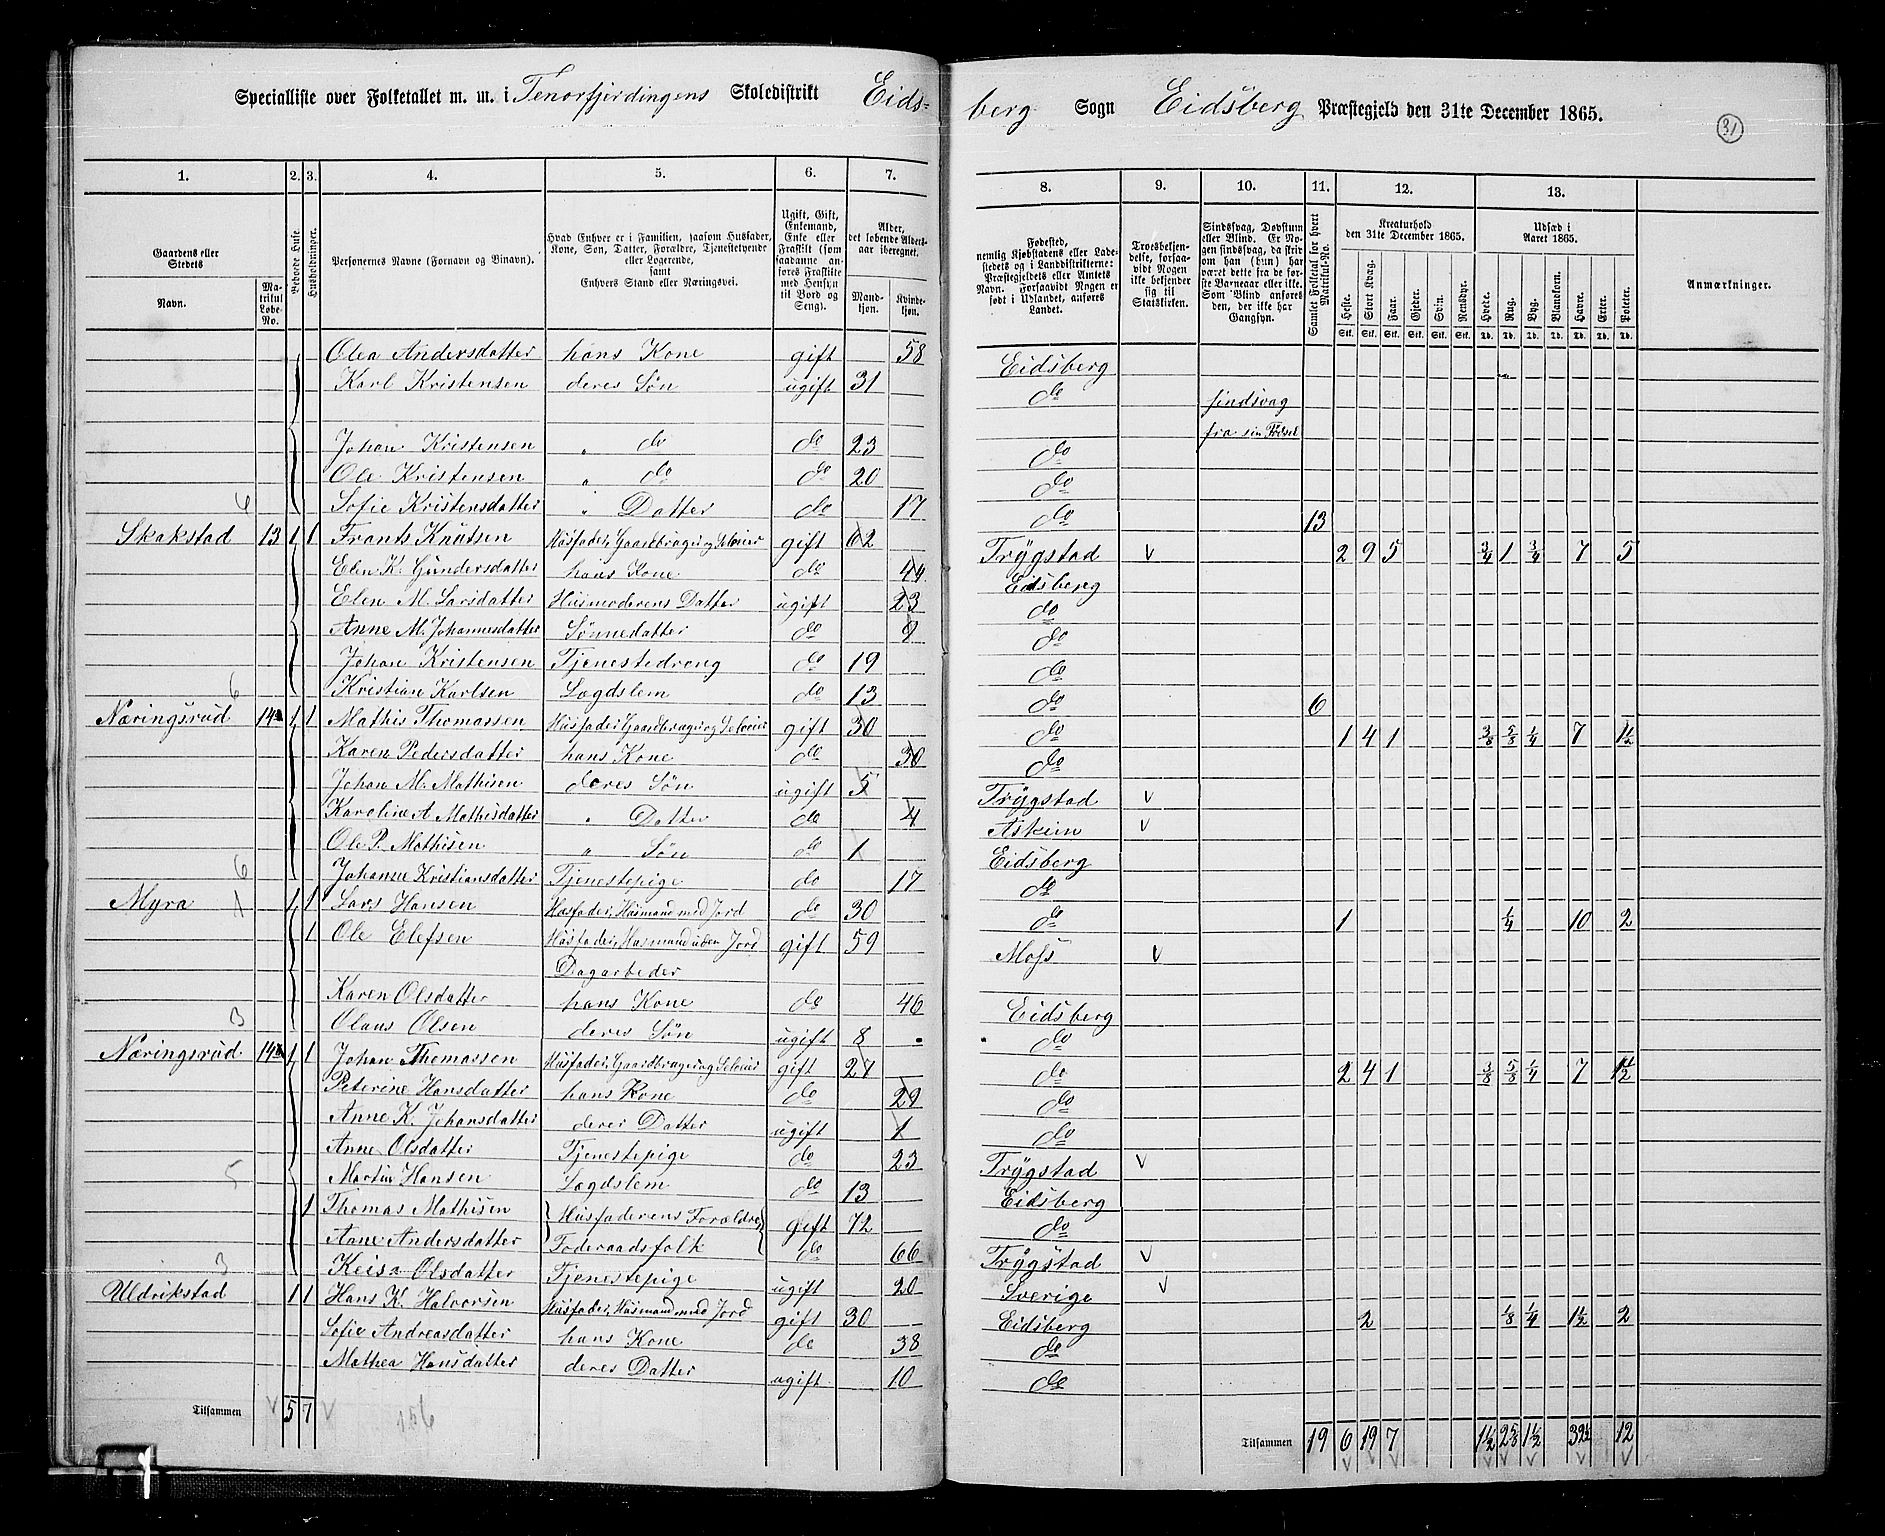 Specialliste over Folketallet m. m. i Tenorfjerdingens Skoledistrikt Eids-
berg Sogn Eidsberg Præstegjeld den 31te December 1865.
31
1. 2. 3. 4. 5. 6. 7.
8. 9. 10. 11. 12. 13.
Gaardens eller Stedets
Navn.
Matrikul Løbe-No.
Beboede Huse.
Husholdninger.
Personernes Navne (Fornavn og Binavn).
Hvad Enhver er i Familien, saasom Husfader, Kone, Søn, Datter, Forældre, Tjenestetyende eller Logerende, samt Enhvers Stand eller Næringsvei.
Ugift, Gift, Enkemand, Enke eller Fraskilt (som saadanne anføres Fraskilte med Hensyn til Bord og Seng).
Alder, det løbende Alders-aar iberegnet.
Mandkjøn. Kvindekjøn.
Fødested, nemlig Kjøbstadens eller Ladestedets og i Landdistrikterne: Præstegjeldets eller Amtets Navn. Forsaavidt Nogen er født i Udlandet, anføres Landet.
Troesbekjendelse, forsaavidt Nogen ikke bekjender sig til Statskirken.
Sindssvag, Døvstum eller Blind. Er Nogen sindssvag, da skrives om han (hun) har været dette fra de første Barneaar eller ikke. Som Blind anføres den, der ikke har Gangsyn.
Samlet Folketal for hvert Matrikul-No.
Kreaturhold den 31te December 1865.
Heste. Stort Kvæg. Faar. Gjeder. Svin. Rensdyr.
Udsæd i Aaret 1865.
Hvede. Rug. Byg. Blandkorn. Havre. Erter. Poteter.
Anmærkninger.
Olea Andersdatter hans Kone gift 58 Eidsberg
Karl Kristensen deres Søn ugift 31 do sindsvag
fra sin Fødsel
Johan Kristensen " do do 23 do
Ole Kristensen " do do 20 do
6 Sofie Kristensdatter " Datter do 17 do 13
Skakstad 13 1 1 Frants Knutsen Husfader, Gaardbruger og Seleier gift 62 Trygstad v 2 9 5 3/4 1 3/4 7 5
Elen K. Gundersdatter hans Kone do 44 Eidsberg
Elen M. Larsdatter Husmoderens Datter ugift 23 do
Anne M. Johannesdatter Sønnedatter do 9 do
Johan Kristensen Tjenestedreng do 19 do
6 Kristian Karlsen Lægdslem do 13 do 6
Næringsrud 14a 1 1 Mathis Thomassen Husfader, Gaardbruger og Seleier gift 30 do 1 4 1 3/8 5/8 1/4 7 1 1/2
Karen Pedersdatter hans Kone do 30 do
Johan M. Mathisen deres Søn ugift 5 Trygstad v
Karoline A Mathisdatter " Datter do 4 Askim v
Ole P. Mathisen " Søn do 1 Eidsberg
6 Johanne Kristiansdatter Tjenestepige do 17 do
Myra 1 1 Lars Hansen Husfader, Husmand med Jord do 30 do 1 1/4 10 2
1 Ole Elefsen Husfader, Husmand uden Jord gift 59 Moss v
Dagarbeder
Karen Olsdatter hans Kone do 46 Eidsberg
3 Olaus Olsen deres Søn ugift 8 do
Næringsrud 14b 1 1 Johan Thomassen Husfader, Gaardbruger og Seleier gift 27 do 2 4 1 3/8 5/8 1/4 7 1 1/2
Peterine Hansdatter hans Kone do 29 do
Anne K. Johansdatter deres Datter ugift 1 do
Anne Olsdatter Tjenestepige do 23 Trygstad v
5 Martin Hansen Lægdslem do 13 Eidsberg
1 Thomas Mathisen Husfaderens Forældre gift 72 do
Anne Andersdatter Foderaadsfolk do 66 Trygstad v
3 Keisa Olsdatter Tjenestepige ugift 20 Sverige v
Uldrikstad 1 1 Hans K. Halvorsen Husfader, Husmand med Jord gift 30 Eidsberg 2 1/8 1/4 1 1/2 2
Sofie Andreasdatter hans Kone do 38 do
Mathea Hansdatter deres Datter ugift 10 do
Tilsammen v 5 7 v 156
Tilsammen 19 6 19 7 1 1/2 2 5/8 1 1/2 32 1/2 12